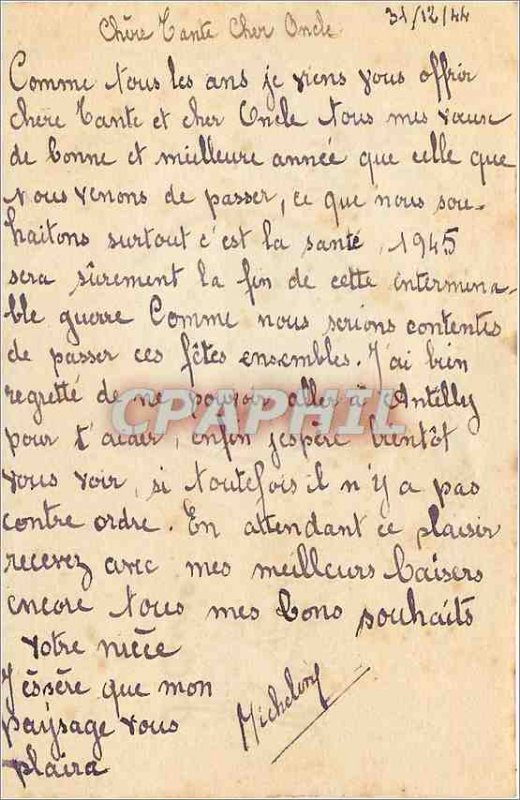 31/12/44
Chère Tante Cher Oncle
Comme tous les ans je viens vous offrir
chère Tante et cher Oncle tous mes vœux
de bonne et meilleure année que celle que
nous venons de passer, ce que nous sou-
haitons surtout c'est la santé, 1945
sera sûrement la fin de cette intermina-
ble guerre Comme nous serions contentes
de passer ces fêtes ensembles. J'ai bien
regretté de ne pouvoir aller à Antilly
pour t'aider, enfin j'espère bientôt
vous voir, si toutefois il n'y a pas
contre ordre. En attendant ce plaisir
recevez avec mes meilleurs baisers
encore tous mes bons souhaits
votre nièce
J'éspère que mon
paysage vous
plaira
CPAPHIL